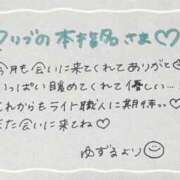 クリブの本指名さま♡
今月も会いに来てくれてありがと☺
いっぱい褒めてくれて優しい…
これからもライト職人に期待!! ♡
また会いに来てね♡
ゆずるより☺